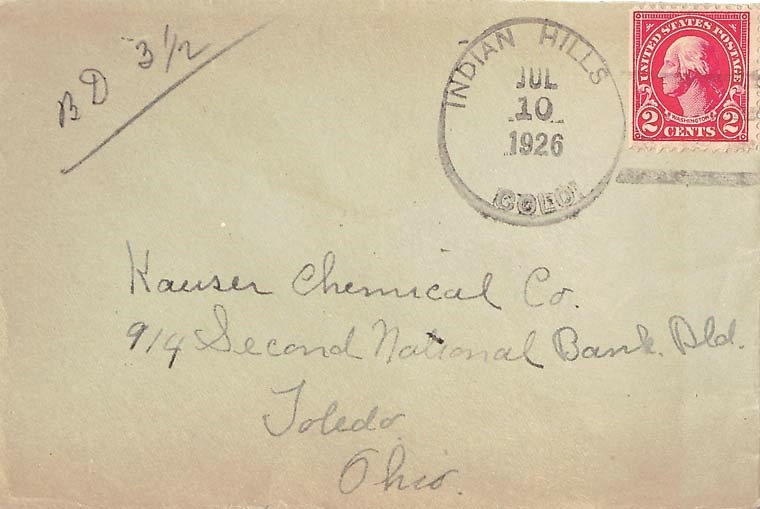 BD 3½
INDIAN HILLS
JUL
10
1926
COLO.
UNITED STATES POSTAGE
WASHINGTON
2 CENTS 2
Hauser Chemical Co.
914 Second National Bank. Bld.
Toledo
Ohio.